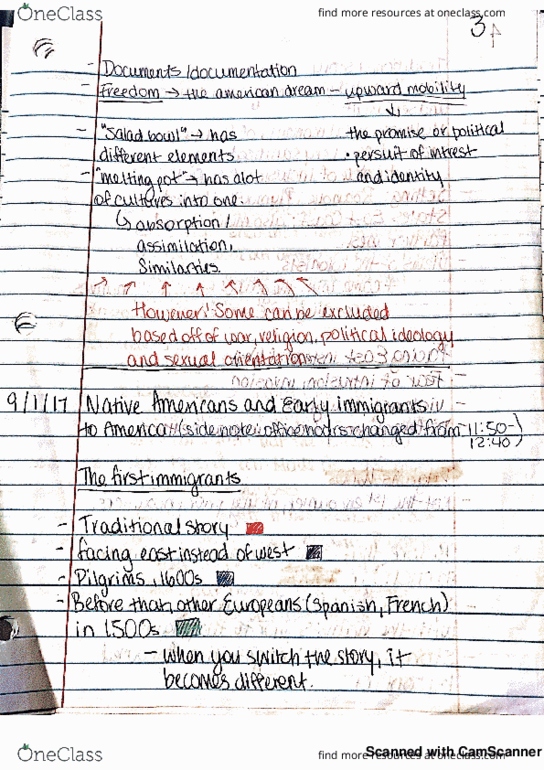 OneClass
find more resources at oneclass.com
3
- Documents/documentation
- freedom → the american dream - upward mobility
- "salad bowl" → has
different elements
the promise or political
• persuit of intrest
and identity
- "melting pot" → has alot
of cultures into one.
↳ absorption /
assimilation,
Similarties.
However! Some can be excluded
based off of war, religion, political ideology
and sexual orientation
9/1/17 Native Americans and Early immigrants
to America (side note: office hours changed from 11:50-
12:40)
The first immigrants
- Traditional story
- facing east instead of west
- Pilgrims, 1600s
- Before that, other Europeans (Spanish, French)
in 1500s
- when you switch the story, it
becomes different.
OneClass
find more resources at oneclass.com
Scanned with CamScanner